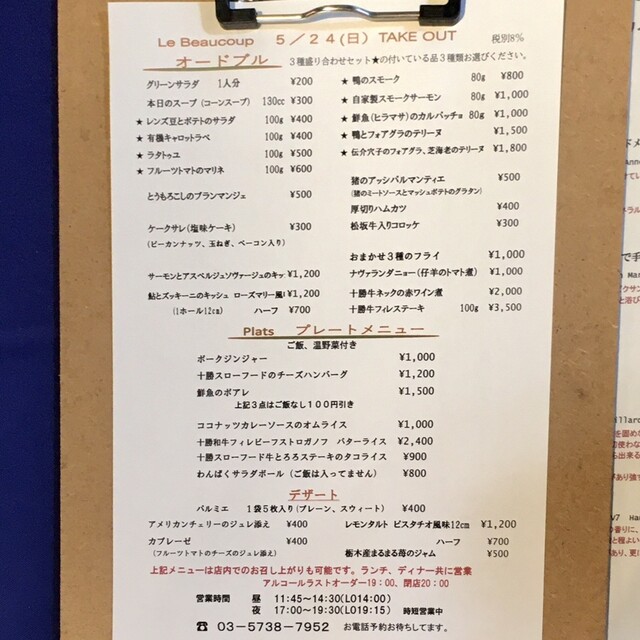 Le Beaucoup 5/24(日) TAKE OUT 税別8%
オードブル 3種盛り合わせセット★の付いている品3種類お選びください。
グリーンサラダ 1人分 ¥200
本日のスープ (コーンスープ) 130cc ¥300
★ レンズ豆とポテトのサラダ 100g ¥400
★ 有機キャロットラペ 100g ¥400
★ ラタトゥユ 100g ¥500
★ フルーツトマトのマリネ 100g ¥600
とうもろこしのブランマンジェ ¥500
ケークサレ (塩味ケーキ) ¥300
(ピーカンナッツ、玉ねぎ、ベーコン入り)
サーモンとアスペルジュソヴァージュのキッ ¥1,200
鮎とズッキーニのキッシュ ローズマリー風 ¥1,200
(1ホール12cm) ハーフ ¥700
★ 鴨のスモーク 80g ¥800
★ 自家製スモークサーモン 80g ¥1,000
★ 鮮魚(ヒラマサ)のカルパッチョ 80g ¥1,000
★ 鴨とフォアグラのテリーヌ ¥1,500
★ 伝介穴子のフォアグラ、芝海老のテリーヌ ¥1,800
猪のアッシパルマンティエ ¥500
(猪のミートソースとマッシュポテトのグラタン)
厚切りハムカツ ¥400
松坂牛入りコロッケ ¥300
おまかせ3種のフライ ¥1,000
ナヴァランダニョー(仔羊のトマト煮) ¥1,000
十勝牛ネックの赤ワイン煮 ¥2,000
十勝牛フィレステーキ 100g ¥3,500
Plats プレートメニュー
ご飯、温野菜付き
ポークジンジャー ¥1,000
十勝スローフードのチーズハンバーグ ¥1,200
鮮魚のポアレ ¥1,500
上記3点はご飯なし100円引き
ココナッツカレーソースのオムライス ¥1,000
十勝和牛フィレビーフストロガノフ バターライス ¥2,400
十勝スローフード牛とろろステーキのタコライス ¥900
わんぱくサラダボール (ご飯は入ってません) ¥800
デザート
パルミエ 1袋5枚入り(プレーン、スウィート) ¥400
アメリカンチェリーのジュレ添え ¥400
カプレーゼ ¥400
(フルーツトマトのチーズのジュレ添え)
レモンタルト ピスタチオ風味12cm ¥1,200
ハーフ ¥700
栃木産まるまる苺のジャム ¥500
上記メニューは店内でのお召し上がりも可能です。ランチ、ディナー共に営業
アルコールラストオーダー19:00、閉店20:00
営業時間 昼 11:45~14:30(LO14:00)
夜 17:00~19:30(LO19:15) 時短営業中
☎ 03-5738-7952 お電話予約お待ちしてます。